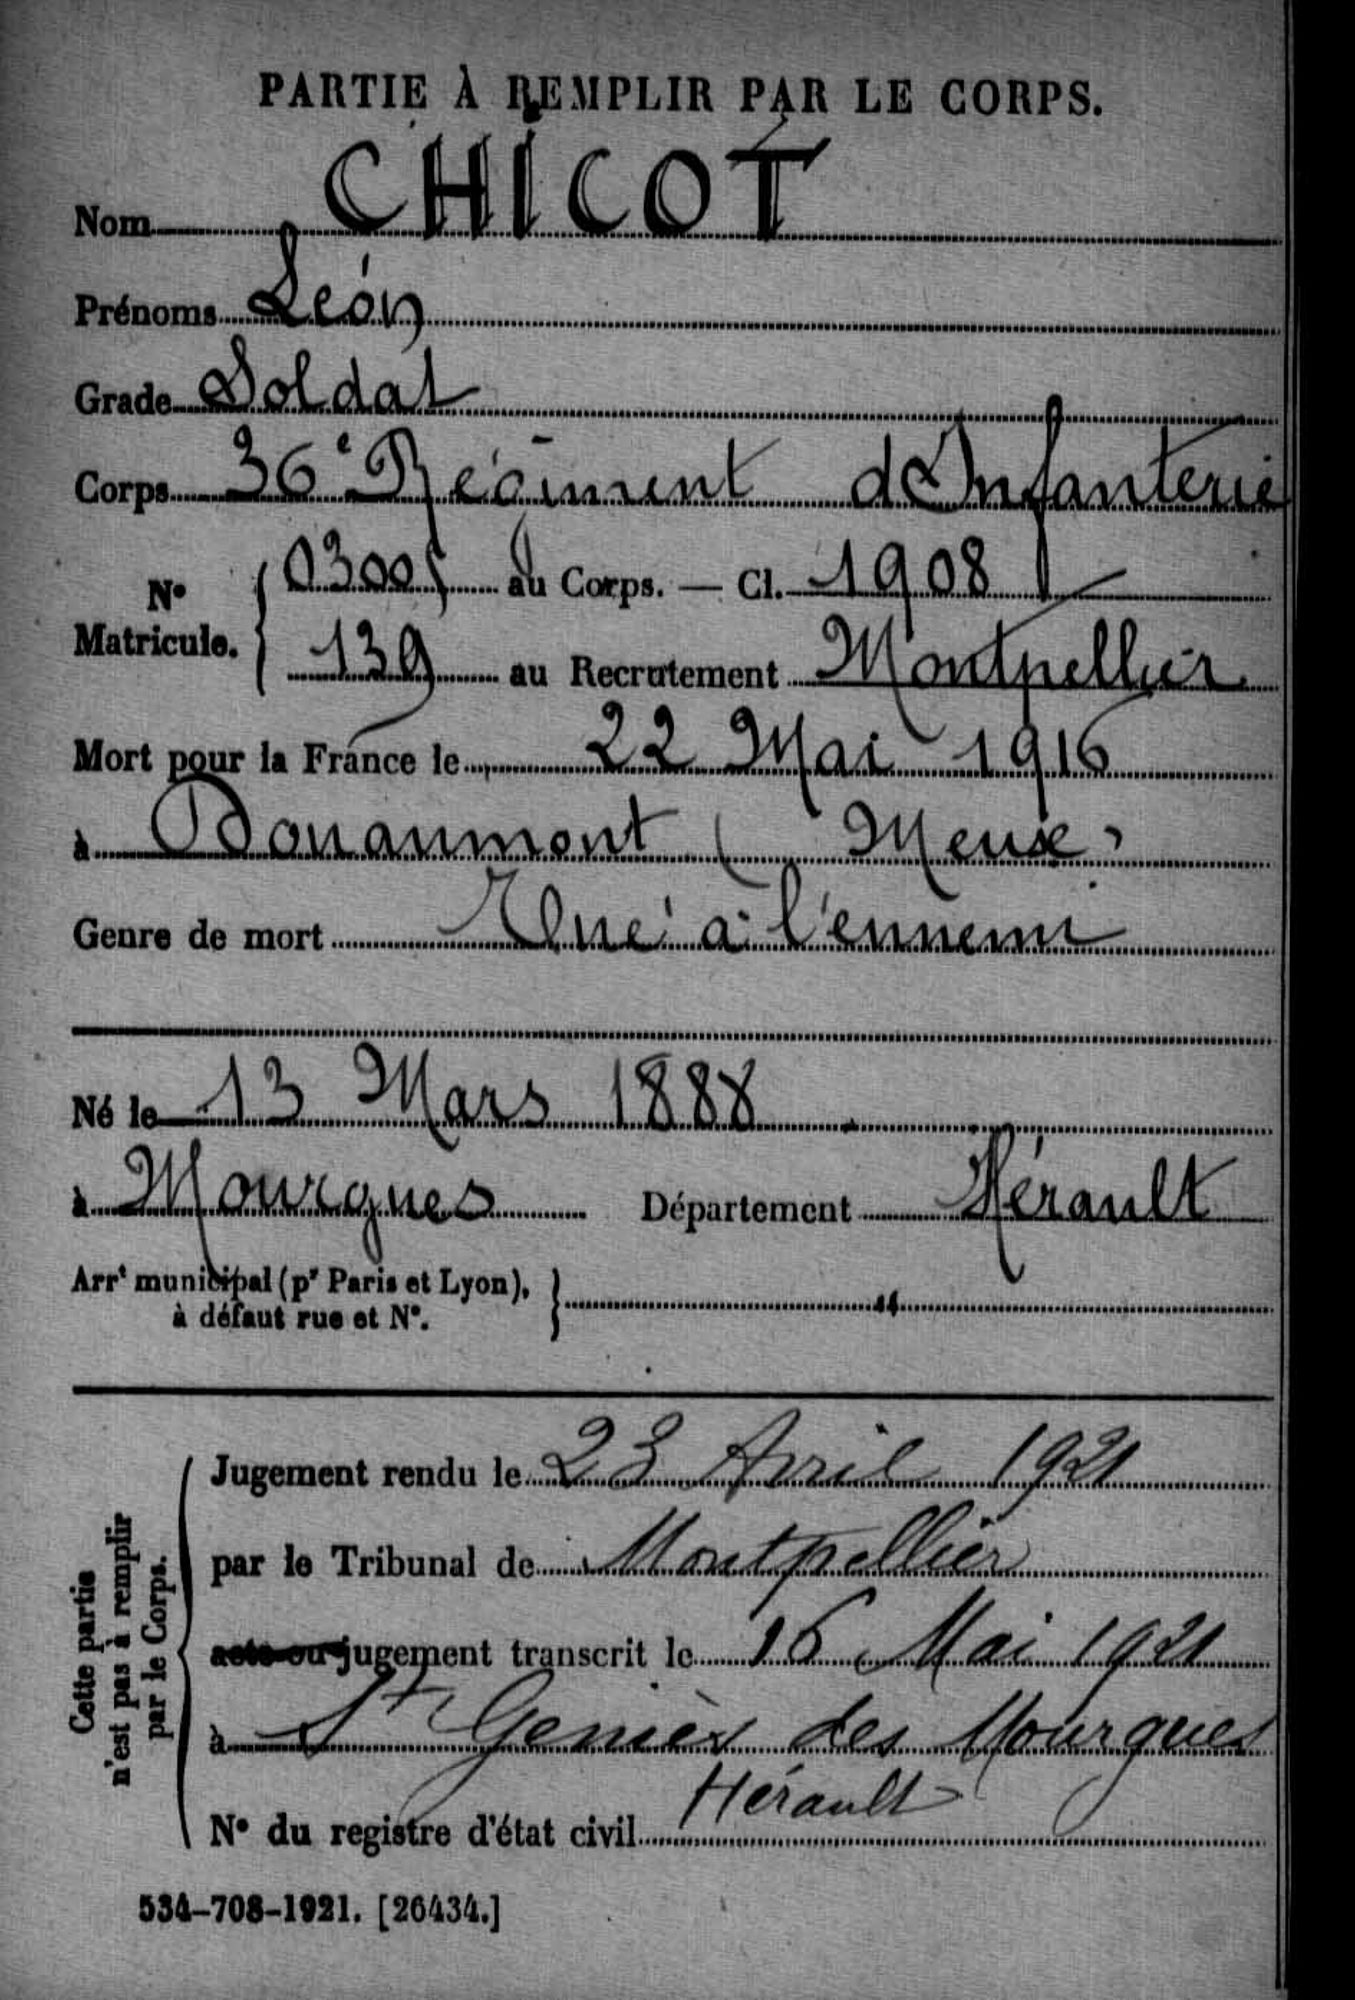 PARTIE À REMPLIR PAR LE CORPS.
Nom CHICOT
Prénoms Léon
Grade Soldat
Corps 36e Régiment d'Infanterie
No Matricule. { 03005 au Corps. — Cl. 1908
139 au Recrutement Montpellier
Mort pour la France le 22 Mai 1916
à Douaumont (Meuse)
Genre de mort Tué à l'ennemi
Né le 13 Mars 1888
à Mourgues Département Hérault
Arrt municipal (pr Paris et Lyon), }
à défaut rue et No.
Cette partie
n'est pas à remplir
par le Corps.
Jugement rendu le 23 Avril 1921
par le Tribunal de Montpellier
acte ou jugement transcrit le 16 Mai 1921
à St Geniès des Mourgues
Hérault
No du registre d'état civil
534-708-1921. [26434.]